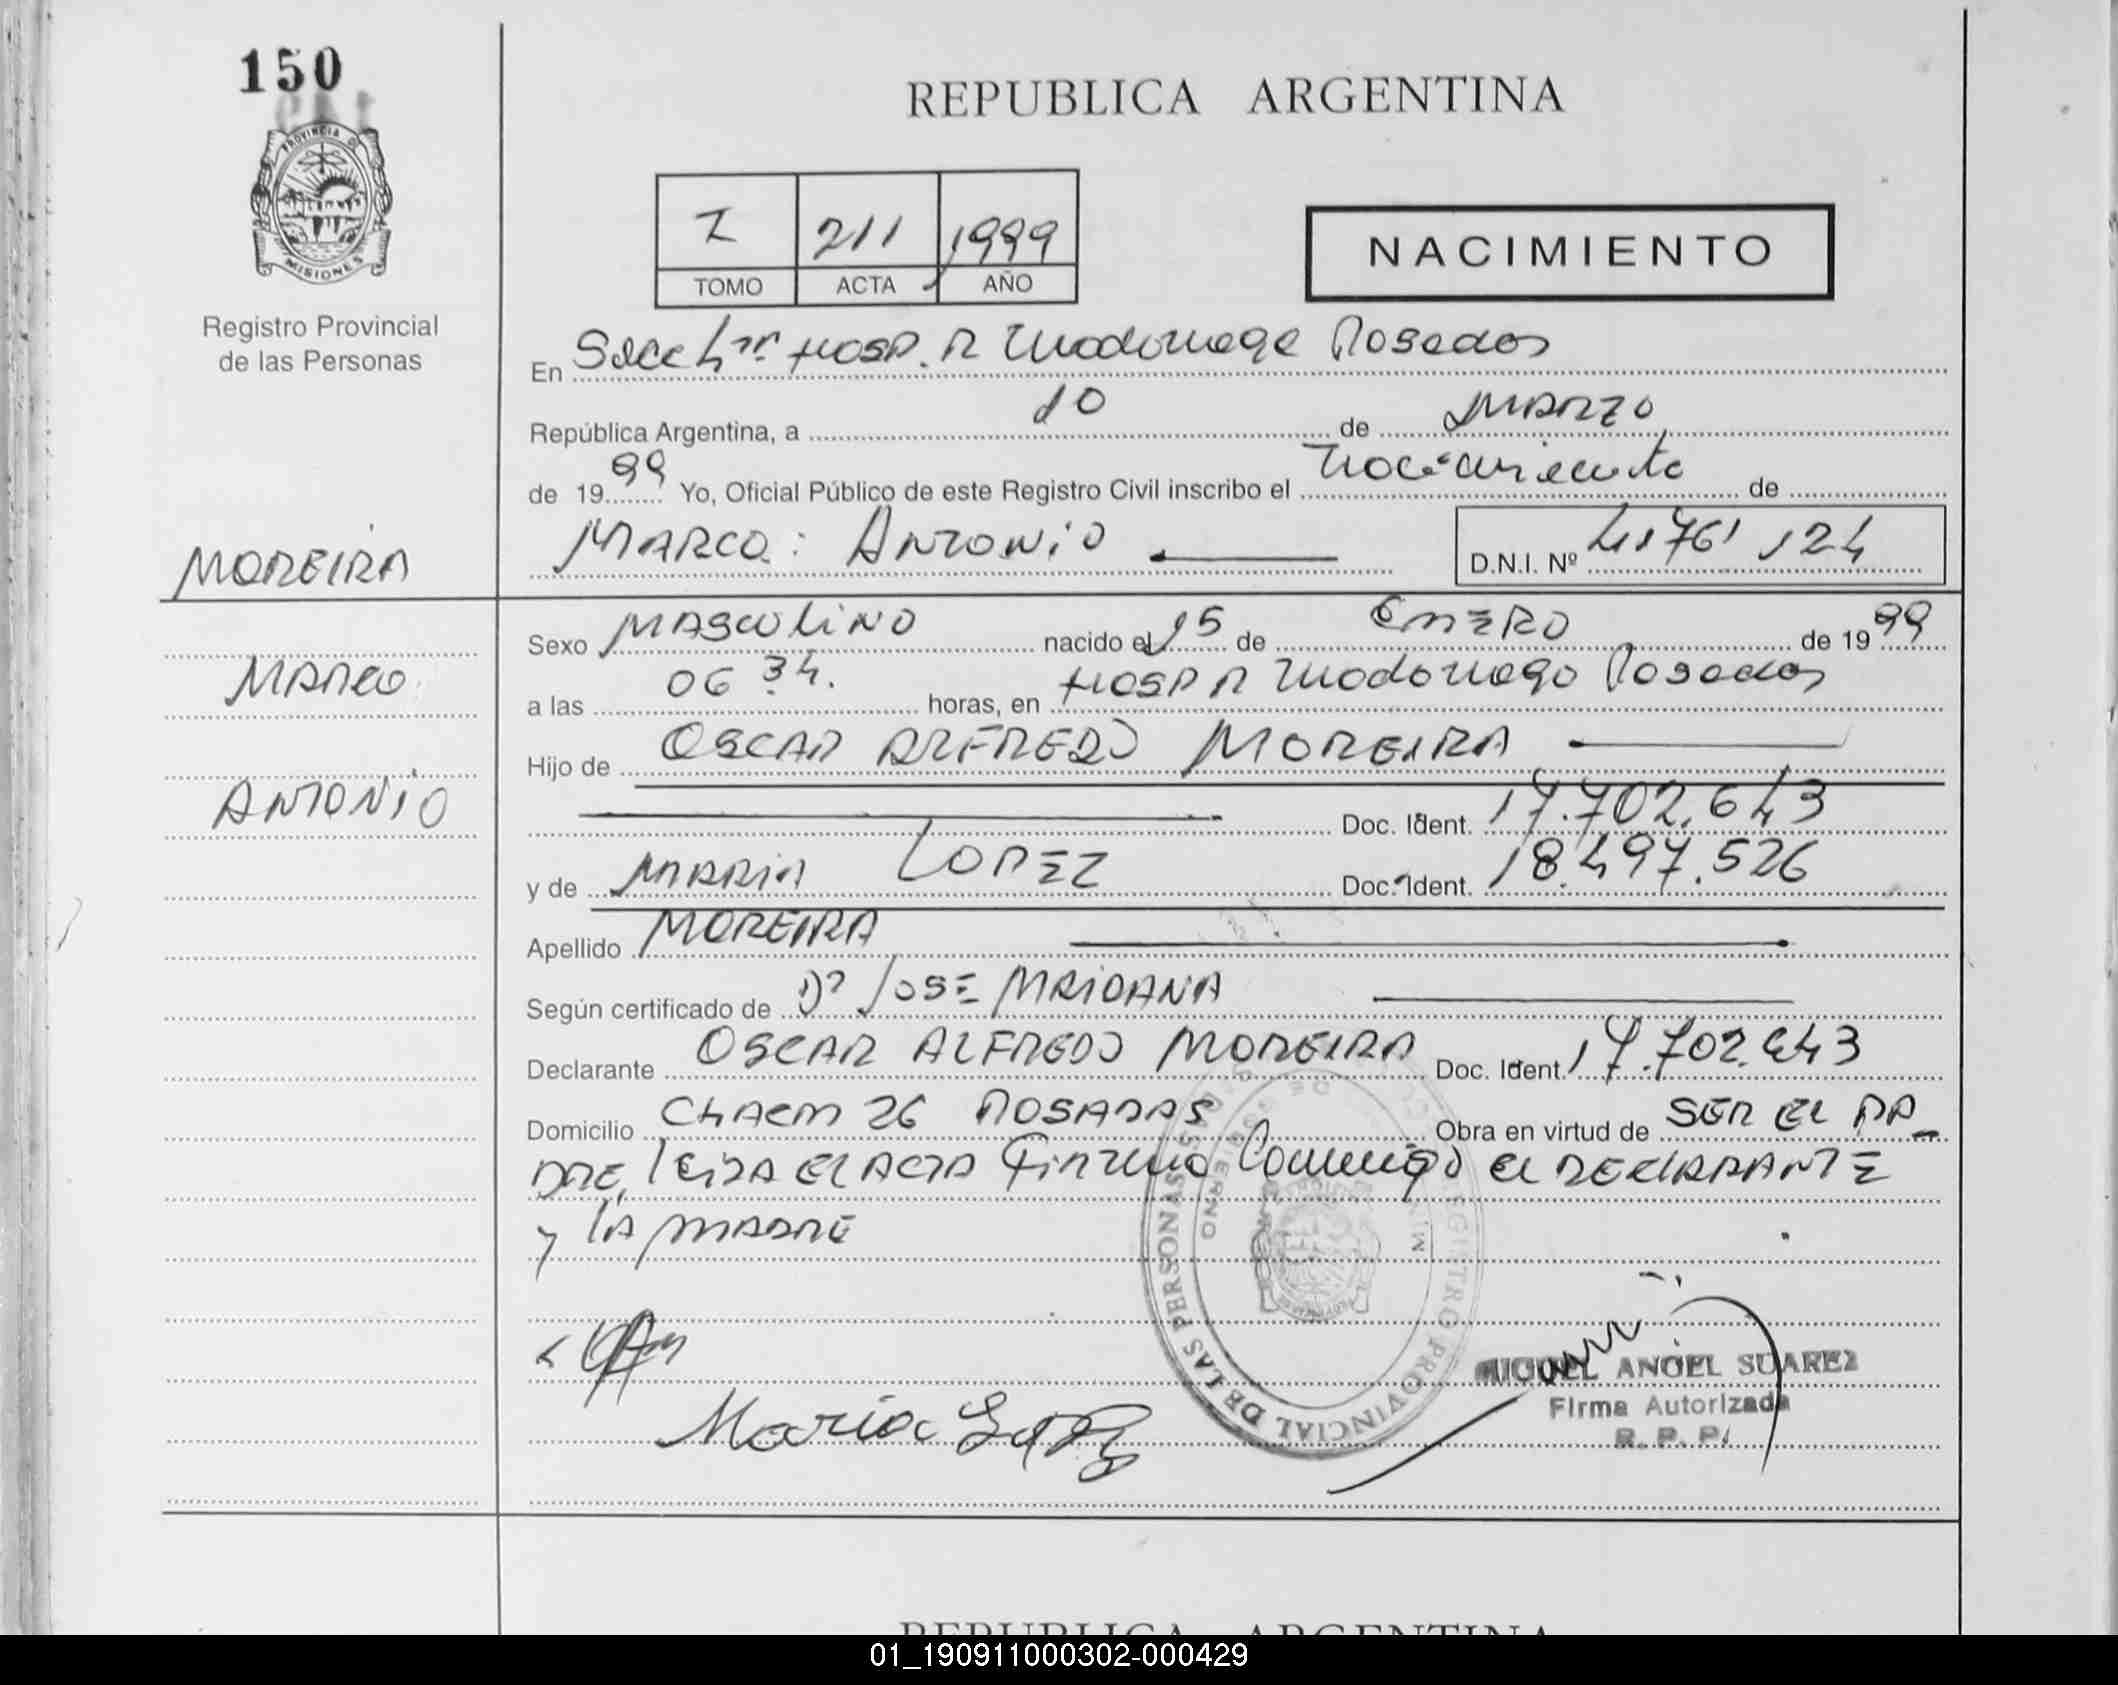 150
REPUBLICA ARGENTINA
PROVINCIA DE
MISIONES
Registro Provincial
de las Personas
I 211 1999
TOMO ACTA AÑO
NACIMIENTO
En Secc 4ta Hosp. R Madariaga Posadas
República Argentina, a 10 de MARZO
de 1999 Yo, Oficial Público de este Registro Civil inscribo el nacimiento de
MOREIRA
MARCO: ANTONIO D.N.I. Nº 41761124
Sexo MASCULINO nacido el 15 de ENERO de 1999
MARCO
a las 06 34. horas, en HOSP R Madariaga Posadas
Hijo de OSCAR ALFREDO MOREIRA
ANTONIO
Doc. Ident. 17.702.643
y de MARIA LOPEZ Doc. Ident. 18.497.526
Apellido MOREIRA
Según certificado de Dr JOSE MAIDANA
Declarante OSCAR ALFREDO MOREIRA Doc. Ident. 17.702.643
Domicilio CHACRA 26 POSADAS Obra en virtud de SER EL PA_
DRE, leida EL ACTA Firman Conmigo el DECLARANTE
y la MADRE
REGISTRO PROVINCIAL DE LAS PERSONAS
MIGUEL ANGEL SUAREZ
Firma Autorizada
R. P. P.
Maria Lopez
REPUBLICA ARGENTINA
01_190911000302-000429